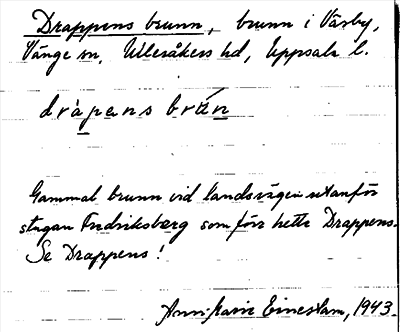 Drappens brunn, brunn i Väsby,
Vänge sn, Ulleråkers hd, Uppsala l.
dràpens brún
Gammal brunn vid landsvägen utanför
stugan Fredriksberg som förr hette Drappens.
Se Drappens!
Ann-Marie Einestam, 1943.